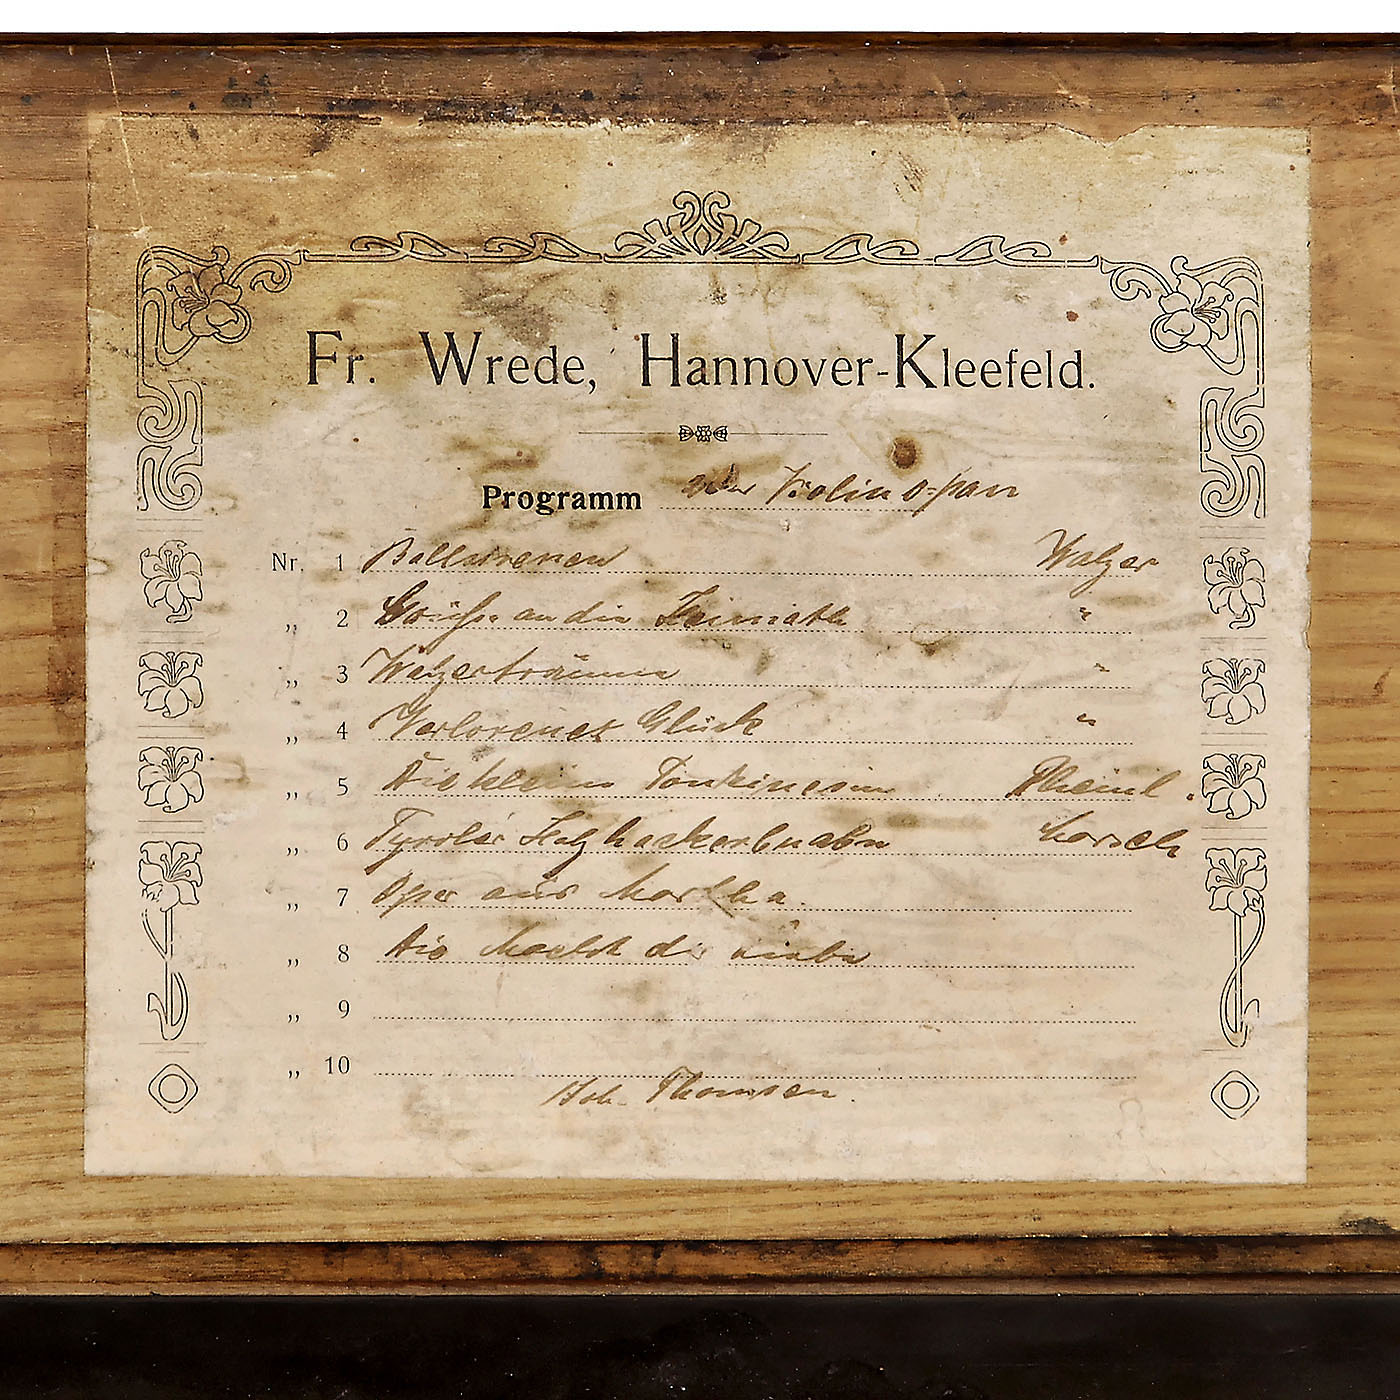 Fr. Wrede, Hannover-Kleefeld.
Programm der Violinopan
Nr. 1 Ballsirenen Walzer
„ 2 Grüsse an die Heimath "
„ 3 Walzerträume "
„ 4 Verlorenes Glück "
„ 5 Die kleine Tonkinesin Rheinl.
„ 6 Tyroler Holzhackerbuabn Marsch
„ 7 Oper aus Martha.
„ 8 Die Macht der Liebe
„ 9
„ 10
Joh. Thomsen.